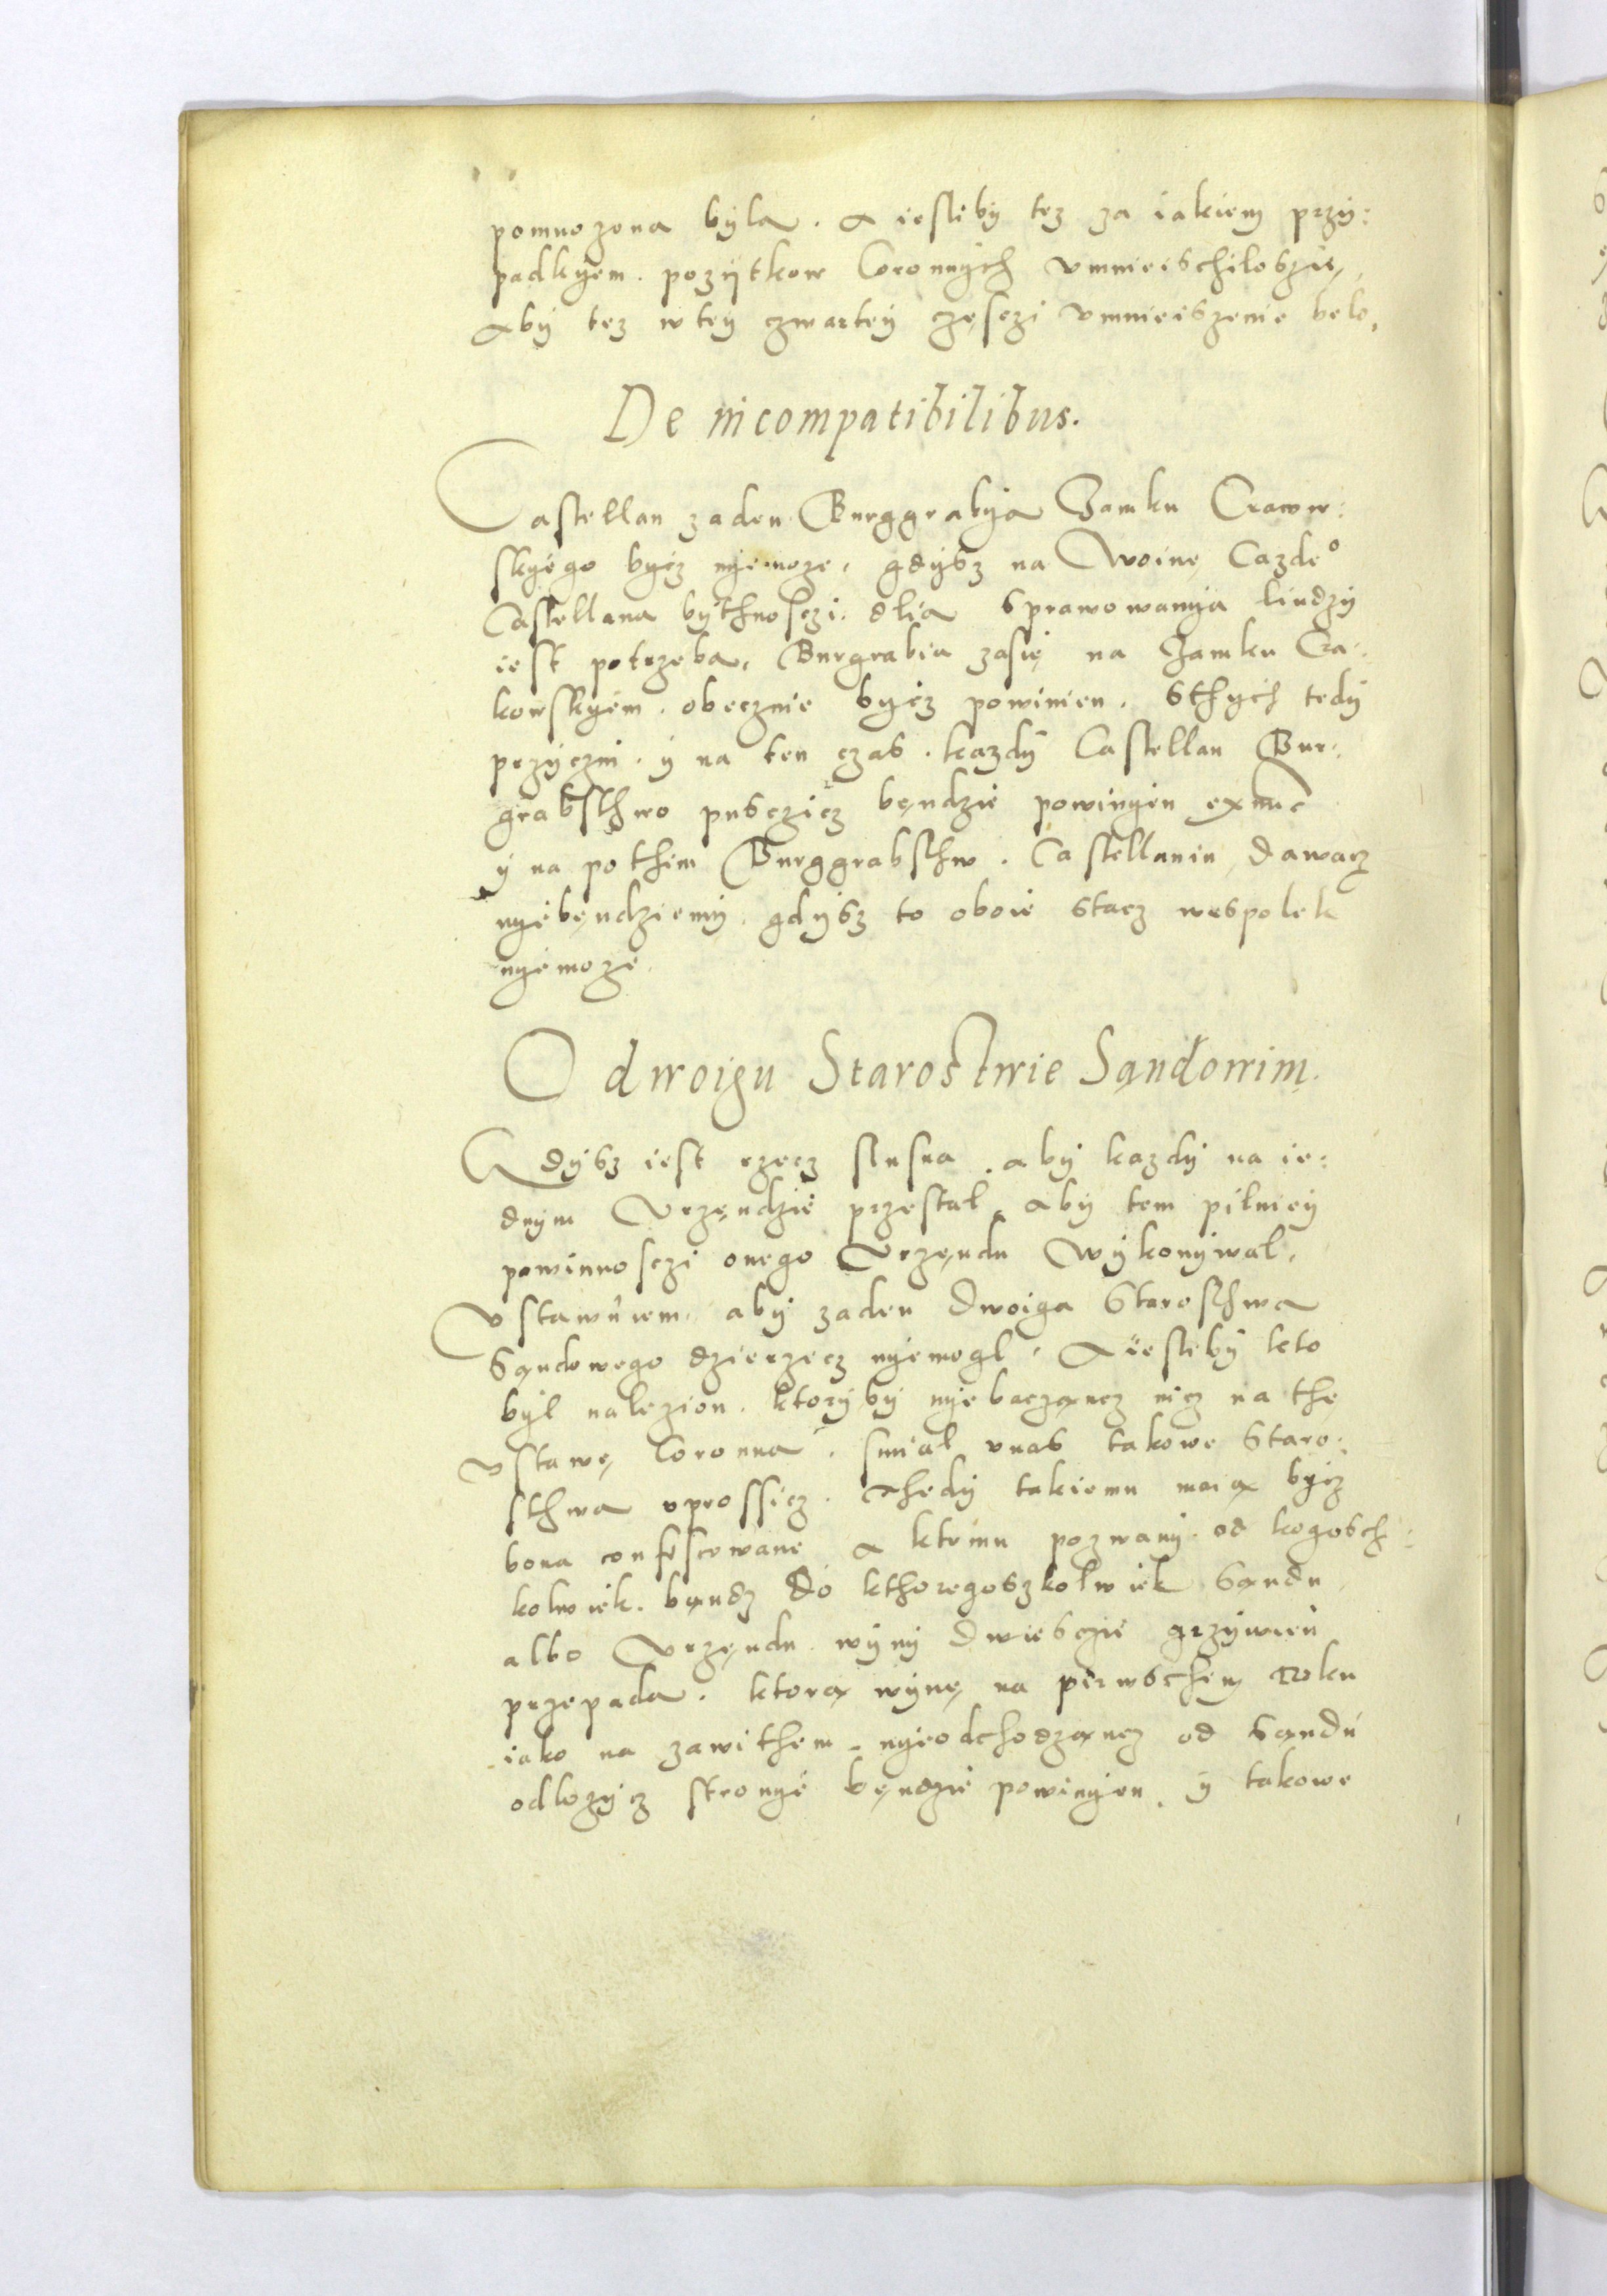 pomnozona byla. A iesliby tez za iakiem przÿ:
padkÿem. pozÿtkow Coronnÿch vmnieischiloszie,
Abÿ tez w teÿ czwarteÿ częsczi vmnieiszenie belo.
De incompatibilibus.
Castellan zaden Burggrabÿa Zamku Craow:
skÿego bÿcz nÿemoze, gdÿsz na Woinę Cazdeº
Castellana bÿthnosczi. dlia sprawowanÿa liudzÿ
iest potrzeba, Burgrabia zasię na Zamku Cra:
kowskÿem. obecznie bÿcz powinien. Sthÿch tedÿ
przÿczin. ÿ na ten czas. kazdÿ Castellan Bur:
grabsthwo pusczicz bęndzie powinÿen exnunc
ÿ na pothim Burggrabsthw. Castellanin, dawacz
nÿebęndziemÿ. gdÿsz to oboie stacz wespolek
nÿemoze.
O dwoigu Starostwie Sąndowim.
Gdÿsz iest rzecz slusna. abÿ kazdÿ na ie:
dnÿm Vrzęndzie przestal, abÿ tem pilnieÿ
powinnosczi onego Vrzęndu wÿkonÿwal.
Vstawuiem. abÿ zaden dwoiga Starosthwa
Sąndowego dzierzecz nÿemogl. A iesliby kto
bÿl nalezion. ktorÿbÿ nÿebacząncz nicz na thę
vstawę Coronna. smial vnas takowe Staro:
sthwa vprossicz. Thedÿ takiemu maią bÿcz
bona confiscowane a ktemu pozwanÿ od kogosch:
kolwiek. bąndz do kthoregoszkolwiek Sąndu
albo Vrzęndu. winÿ dwiesczie grzÿwien
przepada. ktorą winę na pirwschim roku
iako na zawithem. nÿeodchodząncz od Sąndu
odlozÿcz stronÿe bęndzie powinÿen. ÿ takowe